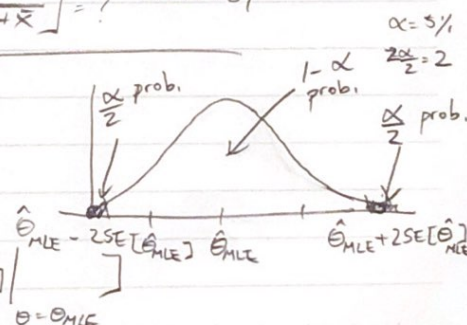 +x̄ ] = ?
α = 5%
2α/2 = 2
α/2 prob.
1 - α prob.
α/2 prob.
θ̂MLE - 2SE[θ̂MLE] θ̂MLE θ̂MLE + 2SE[θ̂MLE]
]| ]
θ = θMLE